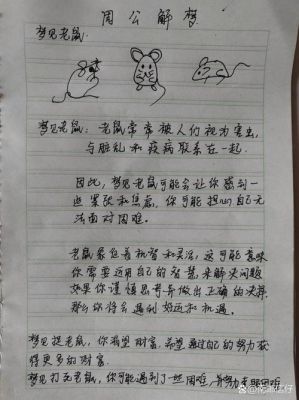 周公解梦
梦见老鼠.
梦见老鼠：老鼠常常被人们视为害虫，
与脏乱和疫病联系在一起.
因此，梦见老鼠可能会让你感到一
些紧张和焦虑，你可能担心自己无
法面对困难。
老鼠象征着机智和灵活，这可能意味
你需要运用自己的智慧，来解决问题
如果你谨慎思考并做出正确的决择，
那么你将会遇到好运和机遇。
梦见捉老鼠，你希望财富，希望通过自己的努力获
得更多的财富.
梦见打死老鼠，你可能遇到了一些困难，并努力克服困难